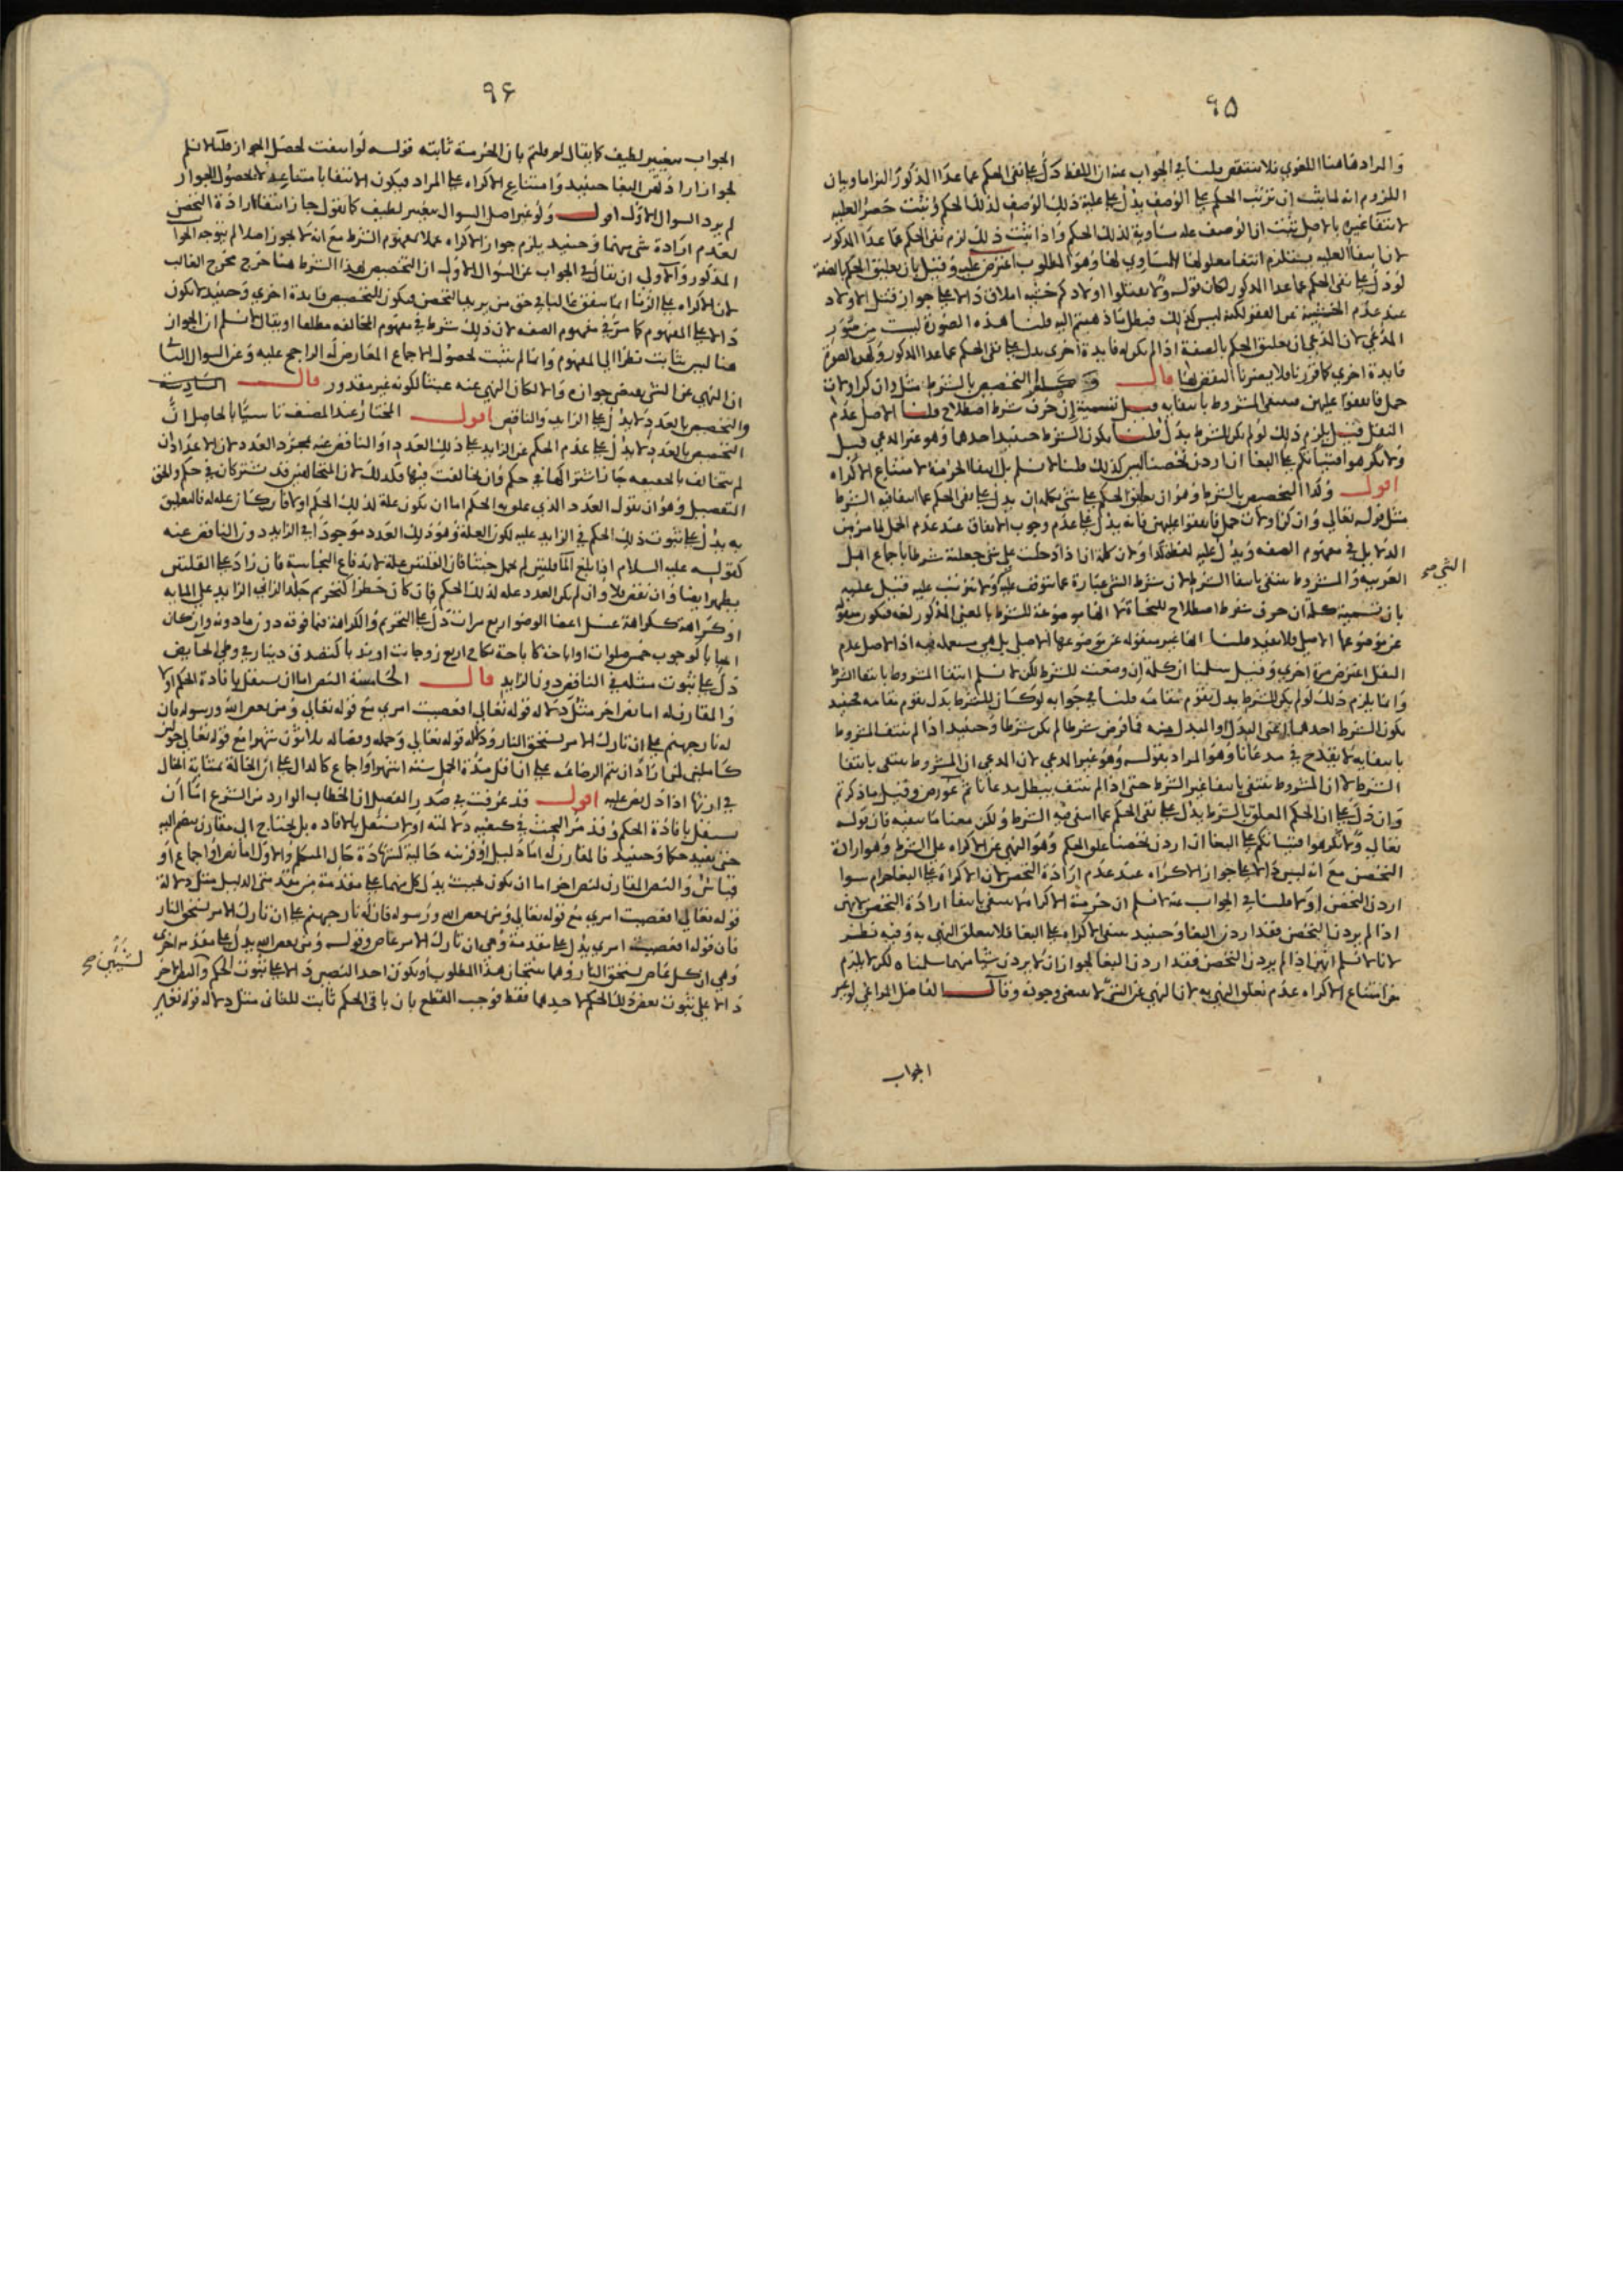 ٩٥
والمراد هاهنا اللغوي فلا ينتقض قلنا في الجواب عنه ان اللفظ دل على نفي الحكم عما عدا المذكور التزاما وبيان
اللزوم انه لما ثبت ان ترتب الحكم على الوصف يدل على علية ذلك الوصف لذلك الحكم وثبت حصر العلية
لانتفا غيره بالاصل ثبت ان الوصف علة مساوية لذلك الحكم واذا ثبت ذلك لزم نفي الحكم عما عدا المذكور
لان انتفا العلية يستلزم انتفا معلولها المساوي لها وهو المطلوب اعترض عليه وقيل بان تعليق الحكم بالصفة
لو دل على نفي الحكم عما عدا المذكور لكان قوله ولا تقتلوا اولادكم خشية املاق دالا على جواز قتل الاولاد
عند عدم الخشية عن الفقر لكنه ليس كذلك فبطل ما ذهبتم اليه قلنا هذه الصورة ليست من صور
المدعي لان المدعي ان تعليق الحكم بالصفة اذا لم يكن له فايدة اخرى يدل على نفي الحكم عما عدا المذكور ولهذه الصورة
فايدة اخرى كما قررنا فلا يضرنا النقض لها قال وكذا التخصيص بالشرط مثل وان كن اولات
حمل فانفقوا عليهن فينتفي المشروط بانتفايه قيل تسمية ان حرف شرط اصطلاح قلنا الاصل عدم
النقل قيل يلزم ذلك لو لم يكن للشرط بدل قلنا يكون الشرط حينيذ احدهما وهو غير المدعي قيل
ولا تكرهوا فتياتكم على البغا ان اردن تحصنا ليس كذلك قلنا لا نسلم بل انتفا الحرمة لامتناع الاكراه
اقول وكذا التخصيص بالشرط وهو ان تعليق الحكم على شي بكلمة ان يدل على نفي الحكم عما انتفا فيه الشرط
مثل قوله تعالى وان كن اولات حمل فانفقوا عليهن فانه يدل على عدم وجوب الانفاق عند عدم الحمل لما مر من
الدلايل في مفهوم الصفة ويدل عليه لفظه كذا ولان كلمة ان اذا دخلت على شي جعلته شرطا باجماع اهل
العربية والمشروط ينتفي بانتفا الشرط لان شرط الشي عبارة عما يتوقف عليه ولا يترتب عليه قيل عليه
الشي صح
بان تسمية كلمة ان حرف شرط اصطلاح للنحاة لا انها موضوعة للشرط بالمعنى المذكور لغة فيكون منقولة
عن موضوعها الاصلي فلا يفيد قلنا انها غير منقولة عن موضوعها الاصلي بل هي مستعملة فيه اذ الاصل عدم
النقل اعترض مرة اخرى وقيل سلمنا ان كلمة ان وضعت للشرط لكن لا نسلم انتفا المشروط بانتفا الشرط
وانما يلزم ذلك لو لم يكن للشرط بدل يقوم مقامه قلنا في جوابه لو كان للشرط بدل يقوم مقامه فحينيذ
يكون الشرط احدهما اعني البدل او المبدل منه فما فرض شرطا لم يكن شرطا وحينيذ اذا لم ينتف المشروط
بانتفايه لا يقدح في مدعانا وهو المراد بقوله وهو غير المدعي لان المدعي ان المشروط ينتفي بانتفا
الشرط لا ان المشروط ينتفي بانتفا غير الشرط حتى اذا لم ينتف يبطل مدعانا ثم عورض وقيل ما ذكرتم
وان دل على ان الحكم المعلق بالشرط يدل على نفي الحكم عما انتفى فيه الشرط ولكن معنا ما ينفيه فان قوله
تعالى ولا تكرهوا فتياتكم على البغا ان اردن تحصنا علق الحكم وهو النهي عن الاكراه على الشرط وهو ارادة
التحصن مع انه ليس دالا على جواز الاكراه عند عدم ارادة التحصن لان الاكراه على البغا حرام سوا
اردن التحصن او لا قلنا في الجواب عنه لا نسلم ان حرمة الاكراه لا تنتفي بانتفا ارادة التحصن لانهن
اذا لم يردن التحصن فقد اردن البغا وحينيذ ينتفي الاكراه على البغا فلا يتعلق النهي به وفيه نظر
لانا لا نسلم انهن اذا لم يردن التحصن فقد اردن البغا لجواز ان لا يردن شيا منهما سلمناه لكن لا يلزم
من امتناع الاكراه عدم تعلق النهي به لان النهي عن الشي لا يقتضي وجوده وقال الفاضل المراغي لو غير
الجواب
٩٦
الجواب بتغيير لطيف كما يقال لم قلتم بان الحرمة ثابتة قوله لو انتفت لحصل الجواز قلنا لا نسلم
لجواز ارادتهن البغا حينيذ وامتناع الاكراه على المراد فيكون الانتفا بامتناعه لا لحصول الجواز
لم يرد السوال الاول اقول ولو غير اصل السوال بتغيير لطيف كما نقول جاز انتفا ارادة التحصن
لعدم ارادة شي منهما وحينيذ يلزم جواز الاكراه عملا بمفهوم الشرط مع انه لا يجوز اصلا لم يتوجه الجواب
المذكور والاولى ان يقال في الجواب عن السوال الاول ان التخصيص بهذا الشرط هنا خرج مخرج الغالب
لان الاكراه على الزنا انما يتفق غالبا في حق من يريد التحصن فيكون للتخصيص فايدة اخرى وحينيذ لا يكون
دالا على المفهوم كما مر في مفهوم الصفة لان ذلك شرط في مفهوم المخالفة مطلقا او يقال لا نسلم ان الجواز
هنا ليس بثابت نظرا الى المفهوم وانما لم يثبت لحصول الاجماع المعارض له الراجح عليه وعن السوال الثاني
ان النهي عن الشي يقتضي جوازه والا لكان النهي عنه عبثا لكونه غير مقدور قال السادسة
والتخصيص بالعدد لا يدل على الزايد والناقص اقول المختار عند المصنف تاسيا بالحاصل ان
التخصيص بالعدد لا يدل على عدم الحكم عن الزايد على ذلك العدد او الناقص عنه بمجرد العدد لان الاعداد ان
لم تتخالف بالحقيقة جاز اشتراكها في حكم وان تخالفت فيها فكذلك لان المتخالفين قد يشتركان في حكم والحق
التفصيل وهو ان نقول العدد الذي علق به الحكم اما ان يكون علة لذلك الحكم او لا فان كان علة له فالتعليق
به يدل على ثبوت ذلك الحكم في الزايد عليه لكون العلة وهو ذلك العدد موجودا في الزايد دون الناقص عنه
كقوله عليه السلام اذا بلغ الما قلتين لم يحمل خبثا فان القلتين علة لاندفاع النجاسة فان زاد على القلتين
يطهر ايضا وان نقص فلا وان لم يكن العدد علة لذلك الحكم فان كان حظرا كتحريم جلد الزاني الزايد على المايه
او كراهة ككراهة غسل اعضا الوضو اربع مرات دل على التحريم والكراهة فيما فوقه دون ما دونه وان كان
ايجابا كوجوب خمس صلوات او اباحة كاباحة نكاح اربع زوجات او ندبا كتصدق دينار في وطي الحايض
دل على ثبوت مثله في الناقص دون الزايد قال الخامسة النص اما ان يستقل بافادة الحكم او لا
والمقارن له اما نص اخر مثل دلالة قوله تعالى افعصيت امري مع قوله تعالى ومن يعص الله ورسوله فان
له نار جهنم على ان تارك الامر يستحق النار ودلالة قوله تعالى وحمله وفصاله ثلاثون شهرا مع قوله تعالى حولين
كاملين لمن اراد ان يتم الرضاعة على ان اقل مدة الحمل ستة اشهر او اجماع كالدال على ان الخالة بمثابة الخال
في ارثها اذا دل نص عليه اقول قد عرفت في صدر الفصل ان الخطاب الوارد من الشرع اما ان
يستقل بافادة الحكم وقد مر البحث في كيفية دلالته او لا يستقل بالافادة بل يحتاج الى مقارن ينضم اليه
حتى يفيد حكما وحينيذ فالمقارن له اما دليل او قرينة حالية كشهادة حال المتكلم والاول اما نص او اجماع او
قياس والنص المقارن لنص اخر اما ان يكون بحيث يدل كل منهما على مقدمة من مقدمتي الدليل مثل دلالة
قوله تعالى افعصيت امري مع قوله تعالى ومن يعص الله ورسوله فان له نار جهنم على ان تارك الامر يستحق النار
فان قوله افعصيت امري يدل على مقدمة وهي ان تارك الامر عاص وقوله ومن يعص الله يدل على مقدمة اخرى
وهي ان كل عاص يستحق النار وهما ينتجان هذا المطلوب او يكون احد النصين دالا على ثبوت الحكم والنص الاخر
لشيئين صح
دالا على ثبوت بعض ذلك الحكم لاحدهما فقط فوجب القطع بان باقي الحكم ثابت للثاني مثل دلالة قوله تعالى